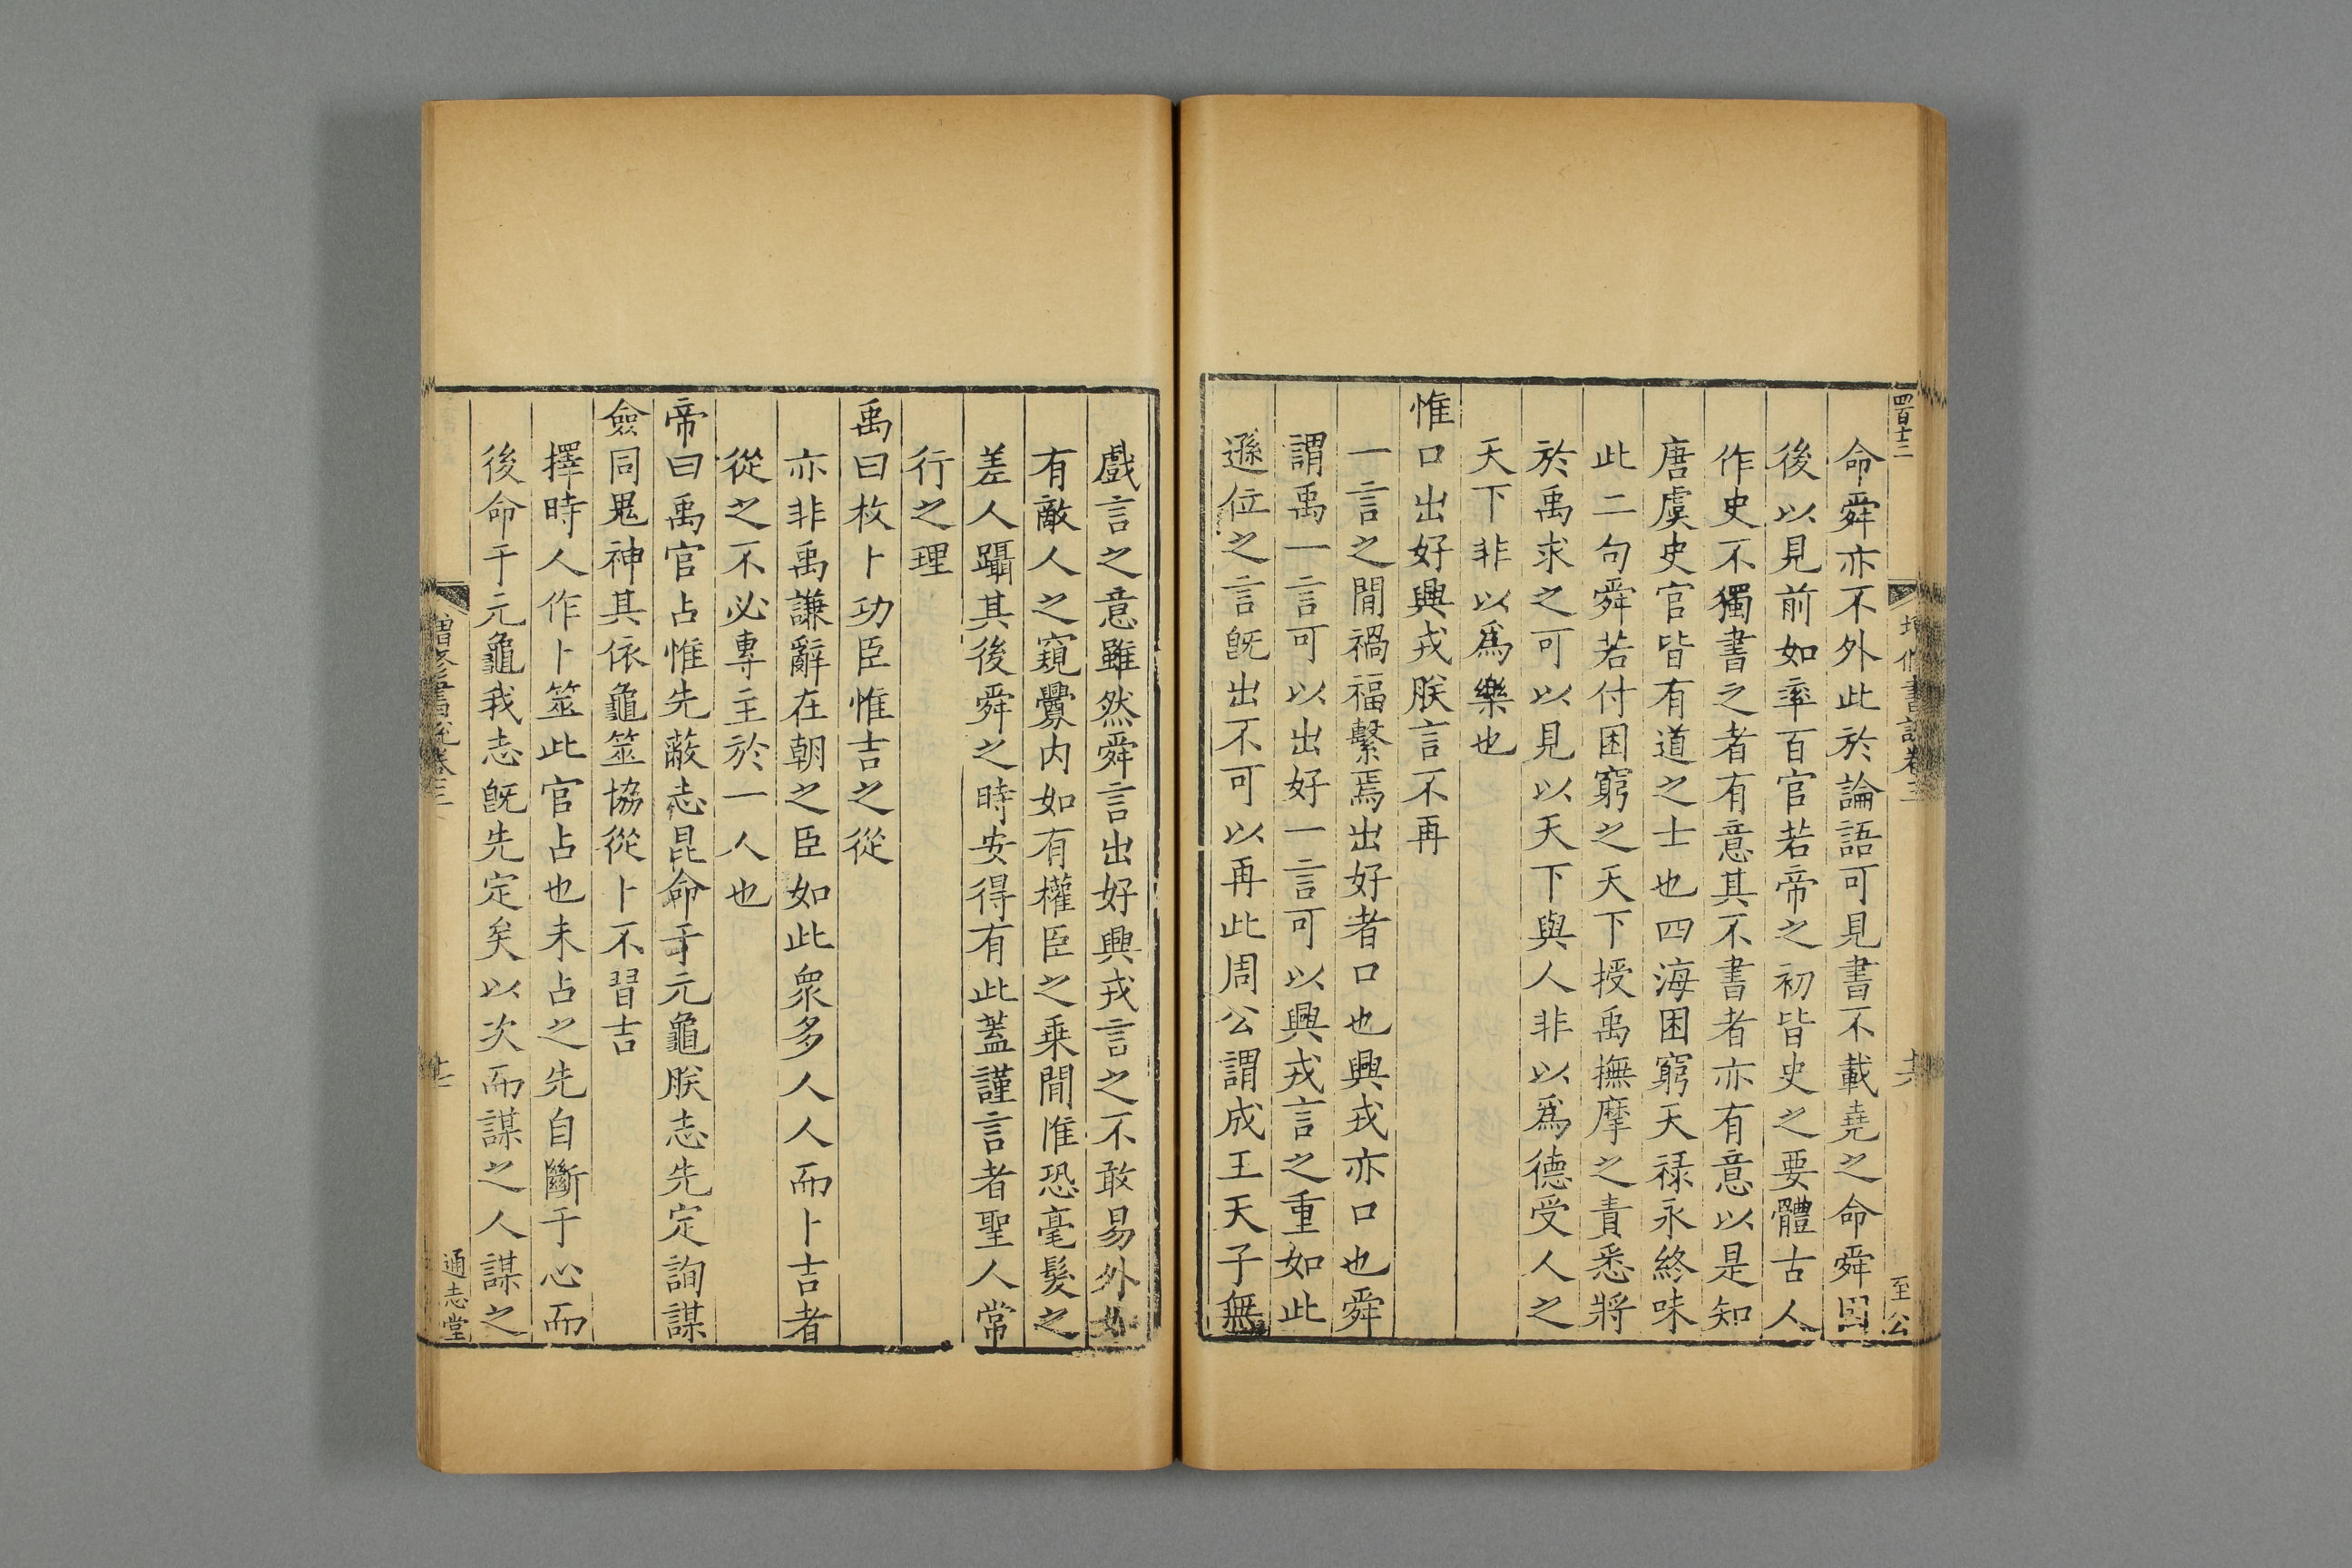 四百十二
至公
命舜亦不外此於論語可見書不載堯之命舜因
後以見前如率百官若帝之初皆史之要體古人
作史不獨書之者有意其不書者亦有意以是知
唐虞史官皆有道之士也四海困窮天祿永終味
此二句舜若付困窮之天下授禹撫摩之責悉將
於禹求之可以見以天下與人非以爲德受人之
天下非以爲樂也
惟口出好興戎朕言不再
一言之閒禍福繫焉出好者口也興戎亦口也舜
謂禹一言可以出好一言可以興戎言之重如此
遜位之言旣出不可以再此周公謂成王天子無
戲言之意雖然舜言出好興戎言之不敢易外如
有敵人之窺釁内如有權臣之乗閒惟恐毫髮之
差人躡其後舜之時安得有此蓋謹言者聖人常
行之理
禹曰枚卜功臣惟吉之從
亦非禹謙辭在朝之臣如此衆多人人而卜吉者
從之不必專主於一人也
帝曰禹官占惟先蔽志昆命于元龜朕志先定詢謀
僉同鬼神其依龜筮協從卜不習吉
擇時人作卜筮此官占也未占之先自斷于心而
後命于元龜我志旣先定矣以次而謀之人謀之
增修書說卷三
通志堂